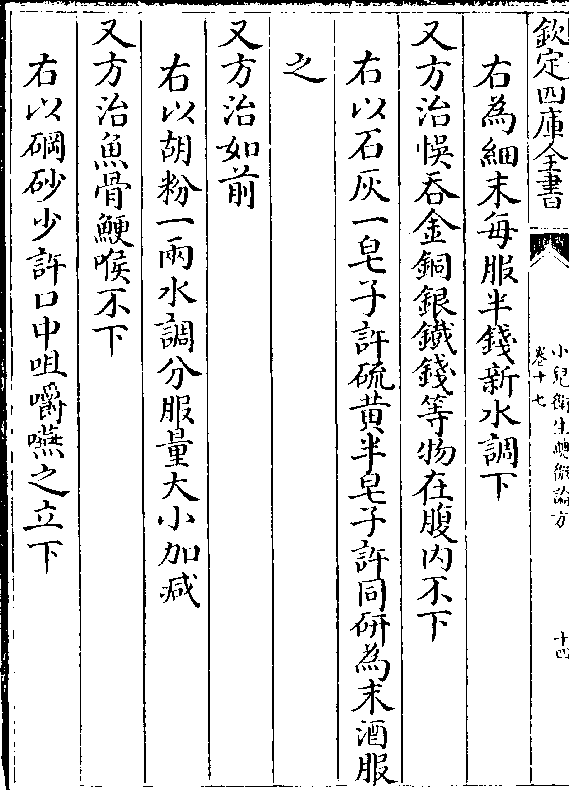 欽定四庫全書
小兒衛生總微論方
卷十七
十四
右為細末每服半錢新水調下
又方治悮吞金銅銀鐵錢等物在腹内不下
右以石灰一皂子許硫黄半皂子許同研為末酒服
之
又方治如前
右以胡粉一兩水調分服量大小加減
又方治魚骨鯁喉不下
右以碙砂少許口中咀嚼嚥之立下